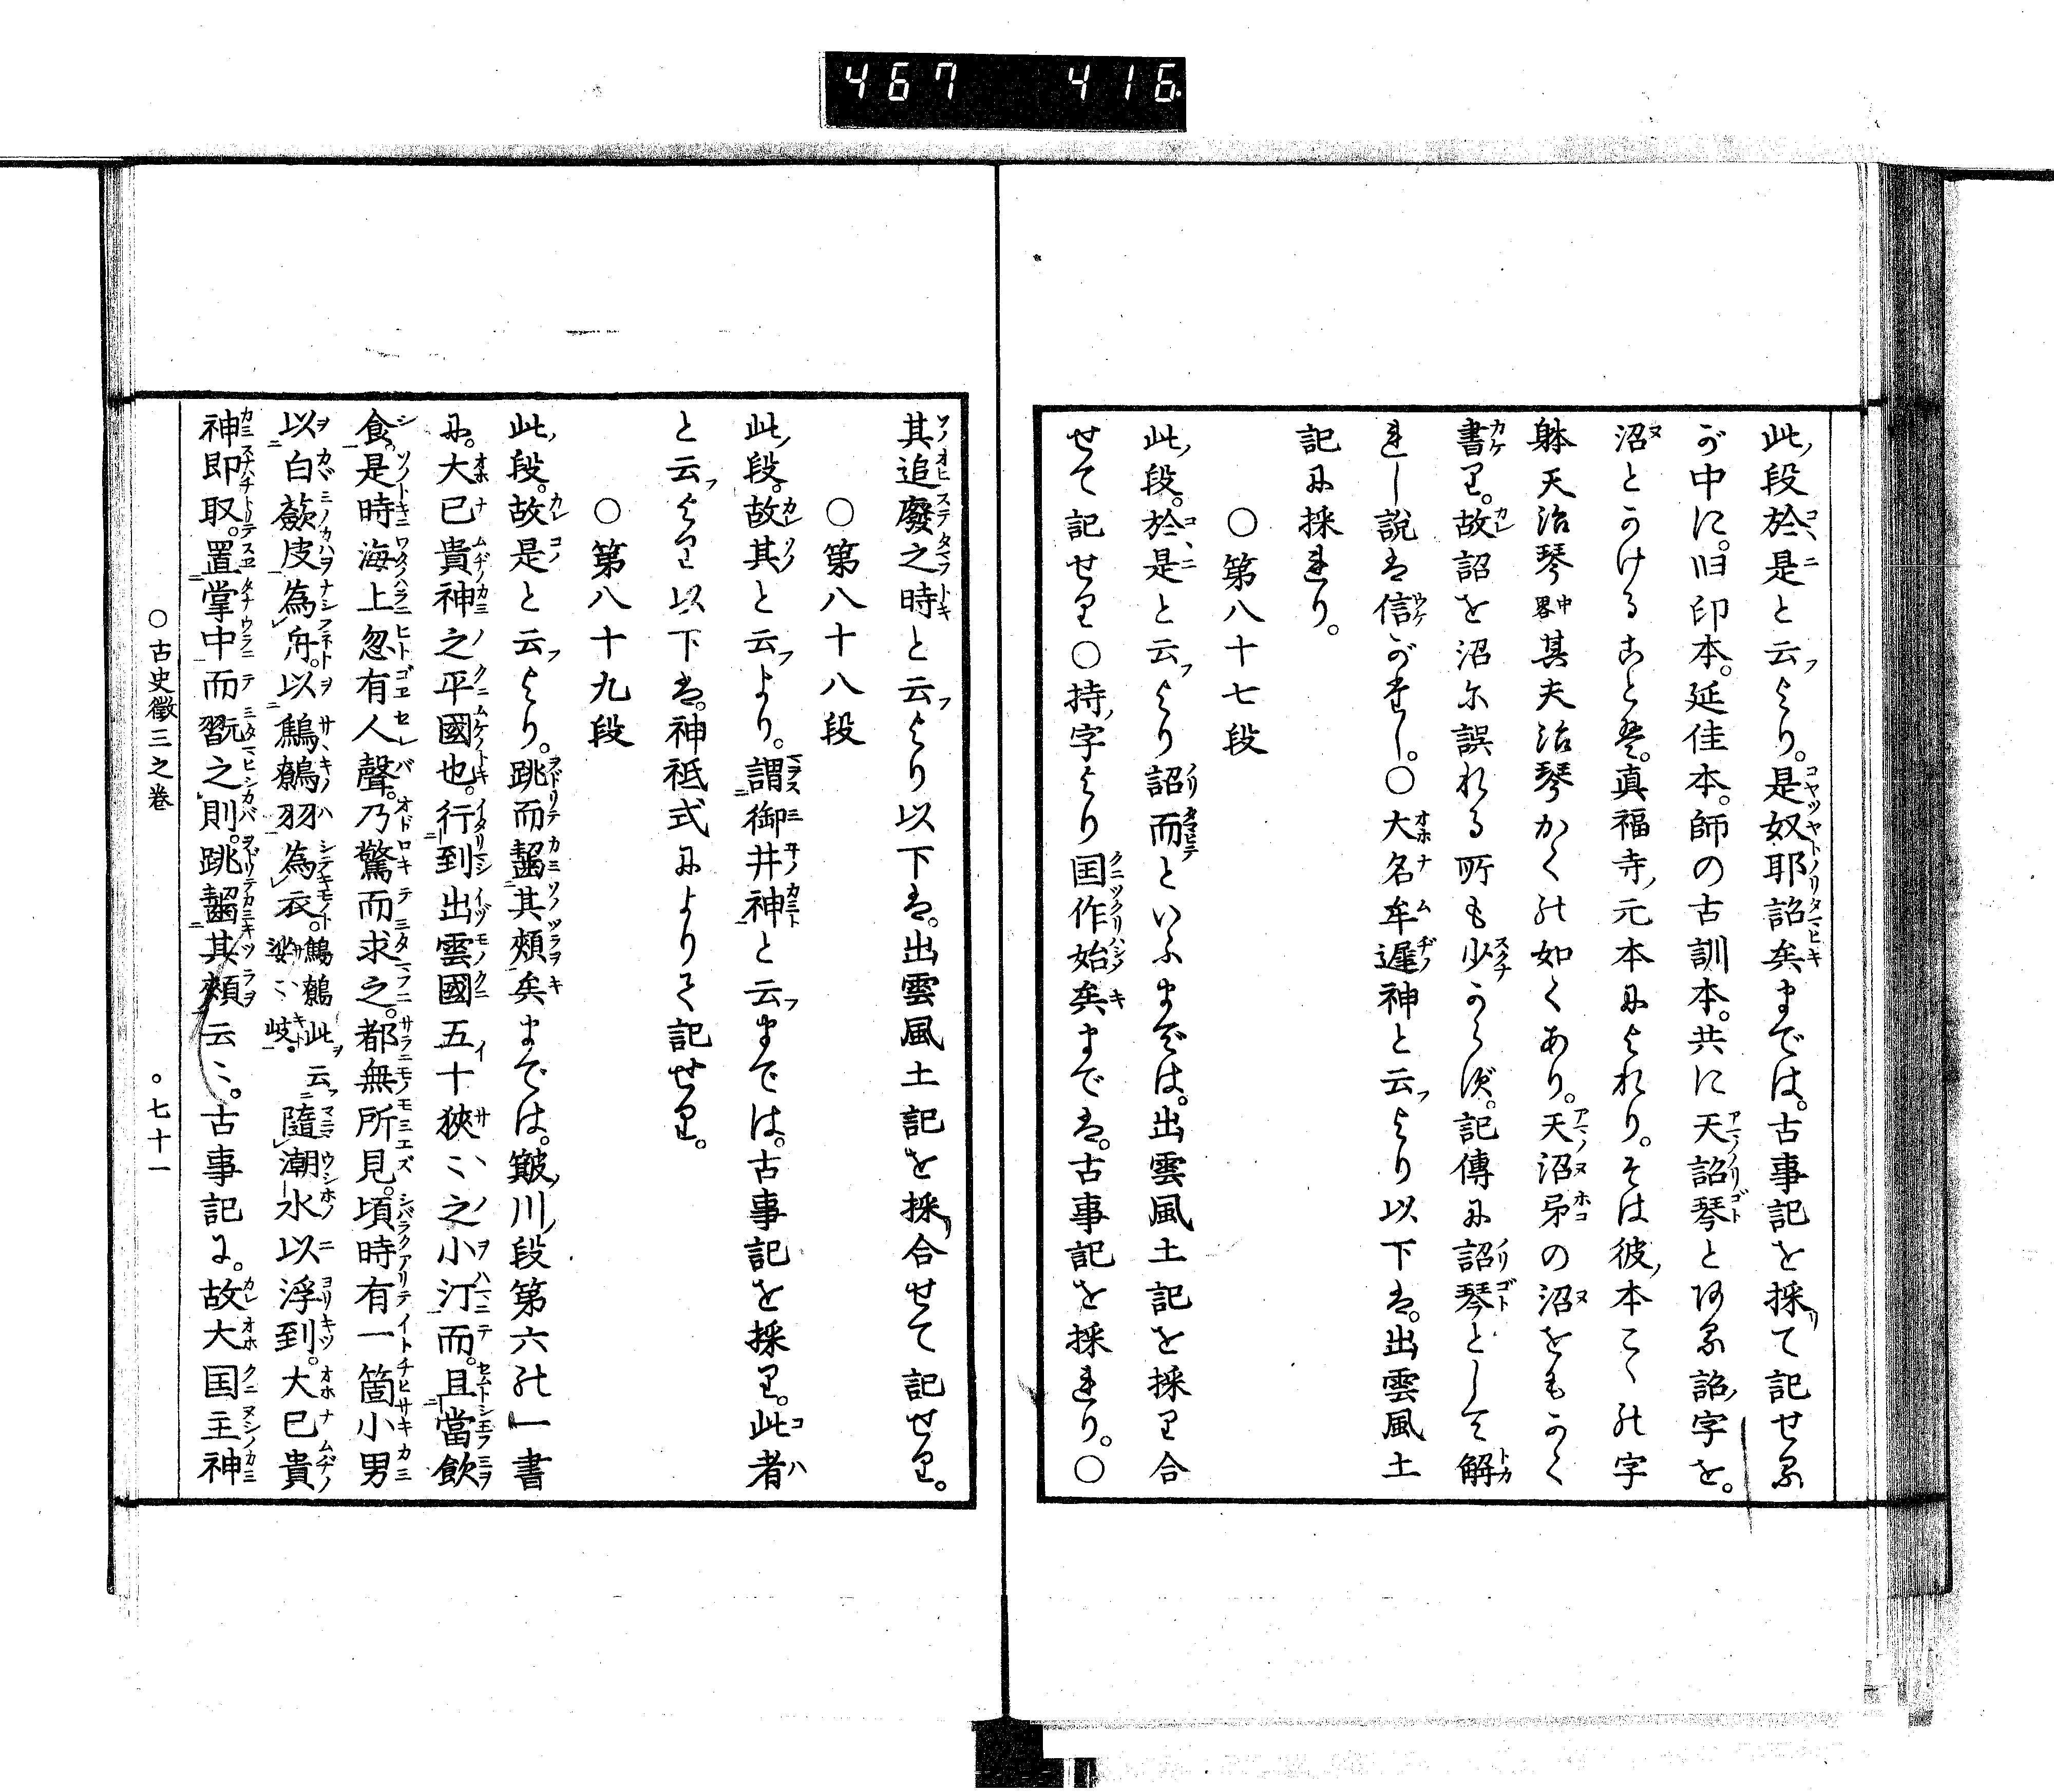 467 416
此段於是と云より。是奴耶詔矣までは。古事記を採て記せるが
が中に。旧印本。延佳本。師の古訓本。共に天詔琴とある詔字を。
沼とかけること是。真福寺元本によれり。そは彼本こゝの字
躰天治琴中畧其夫治琴かくの如くあり。天沼弟の沼をもかく
書り。故詔を沼尓誤れる所も少からず。記傳に詔琴として解
れし説は信がたし。○大名牟遲神と云より以下は。出雲風土
記に採れり。
○第八十七段
此段。於是と云より詔而といふまでは。出雲風土記を採り合
せて記せり○持字より国作始矣までは。古事記を採れり。○
其追廢之時と云より以下は。出雲風土記を採合せて記せり。
○第八十八段
此段。故其と云より。謂御井神と云までは。古事記を採り。此者
と云より以下は。神祗式によりて記せり。
○第八十九段
此段。故是と云より。跳而齧其頰矣までは。簸川段第六の一書
に。大己貴神之平國也。行到出雲國五十狹々之小汀而。且當飲
食。是時海上忽有人聲。乃驚而求之。都無所見。頃時有一箇小男
以白蘞皮為舟。以鷦鷯羽為衣。鷦鷯此云娑々岐。隨潮水以浮到。大己貴
神即取。置掌中而翫之則。跳齧其頰云々。古事記に。故大国主神
○古史徵三之卷 ○七十一